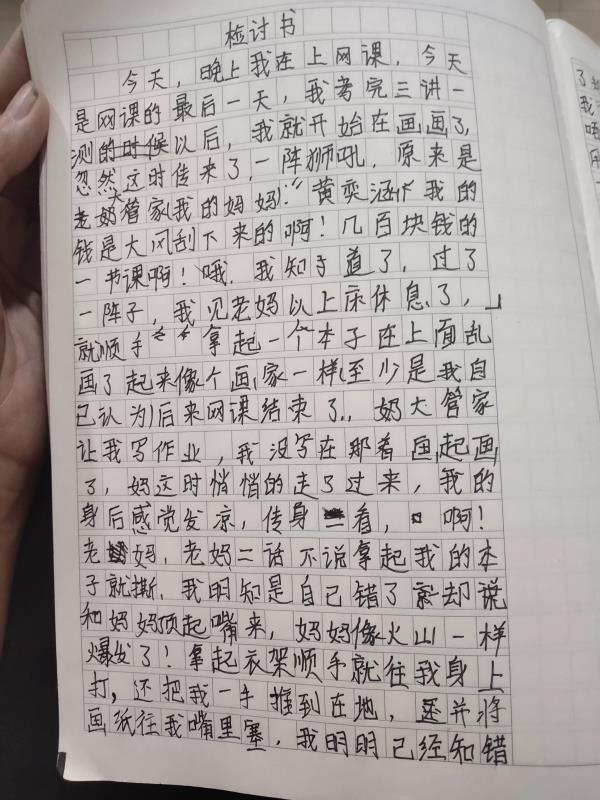 检讨书
今天，晚上我在上网课，今天
是网课的最后一天，我考完三讲一
测的时候以后，我就开始在画画了，
忽然这时传来了，一阵狮吼，原来是
老奶大管家我的妈妈："黄奕涵你我的
钱是大风刮下来的啊！几百块钱的
一节课啊！哦，我知于道了，过了
一阵子，我见老妈以上床休息了，
就顺手拿起一个本子在上面乱
画了起来像个画家一样(至少是我自
己认为)后来网课结束了，奶大管家
让我写作业，我没写在那看画起画
了，妈这时悄悄的走了过来，我的
身后感觉发凉，传身一看，啊！
老妈，老妈二话不说拿起我的本
子就撕，我明知是自己错了就却说
和妈妈顶起嘴来，妈妈像火山一样
爆发了！拿起衣架顺手就往我身上
打，还把我一手推到在地，并将
画纸往我嘴里塞，我明明已经知错